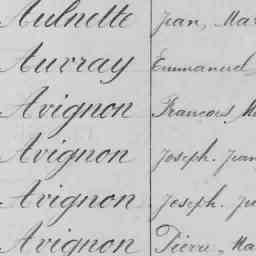 Aulnette Jean, Mar
Auvray Emmanuel
Avignon François, M
Avignon Joseph. Jean
Avignon Joseph. Ju
Avignon Pierre, Ma